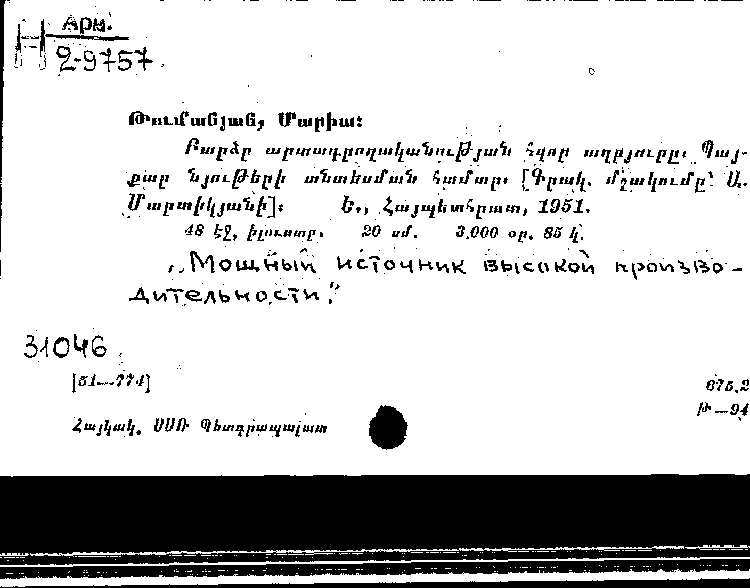 Арм.
2-9757
Թումանյան, Մարիա:
Բարձր արտադրողականության հզոր աղբյուրը. Պայ-
քար նյութերի տնտեսման համար. [Գրակ. մշակումը՝ Ա.
Մարտիկյանի]: Ե., Հայպետհրատ, 1951.
48 էջ, իլուստր. 20 սմ. 3.000 օր. 85 կ.
„Мощный источник высокой произво-
дительности."
31046
[51—774]
675.2
Թ—94
Հայկակ. ՍՍՌ Պետգրապալատ